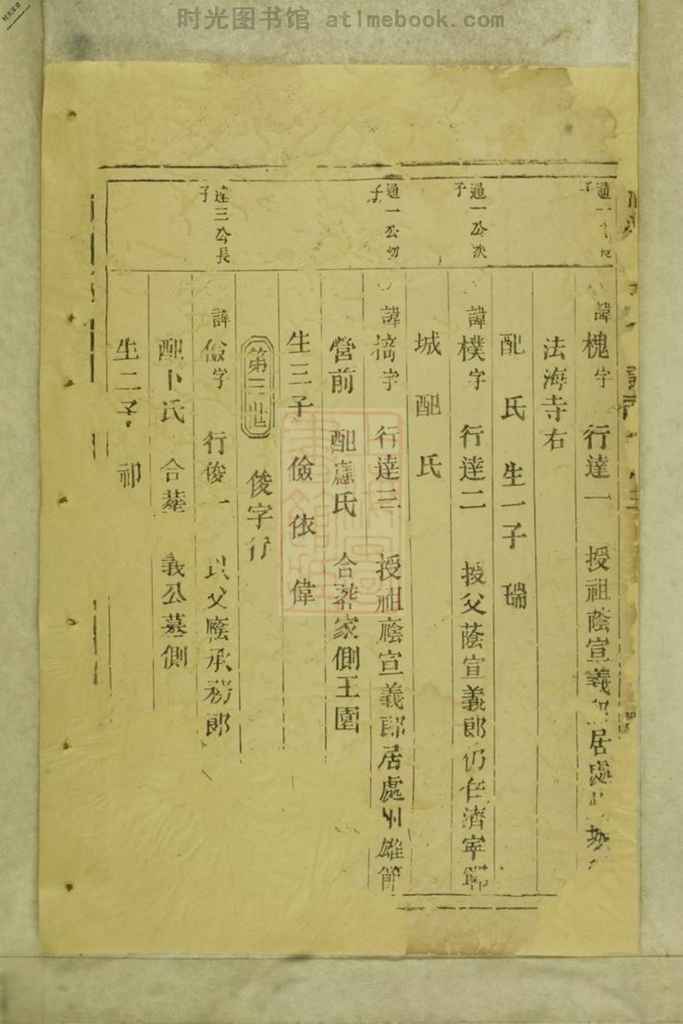 时光图书馆 atimebook.com
通一
子
諱槐字 行達一 授祖蔭宣義 居處 城
法海寺右
配 氏 生一子 瑞
通一公次
子
諱樸字 行達二 授父蔭宣義郎仍任濟寧
城 配 氏
通一公幼
子
諱 字 行達三 授祖蔭宣義郎居處州雄節
營前 配 氏 合葬家側王園
生三子 儉 依 偉
第三世 俊字行
達三公長
子
諱儉字 行俊一 以父蔭承務郎
配卜氏 合葬 義公墓側
生二子 祁